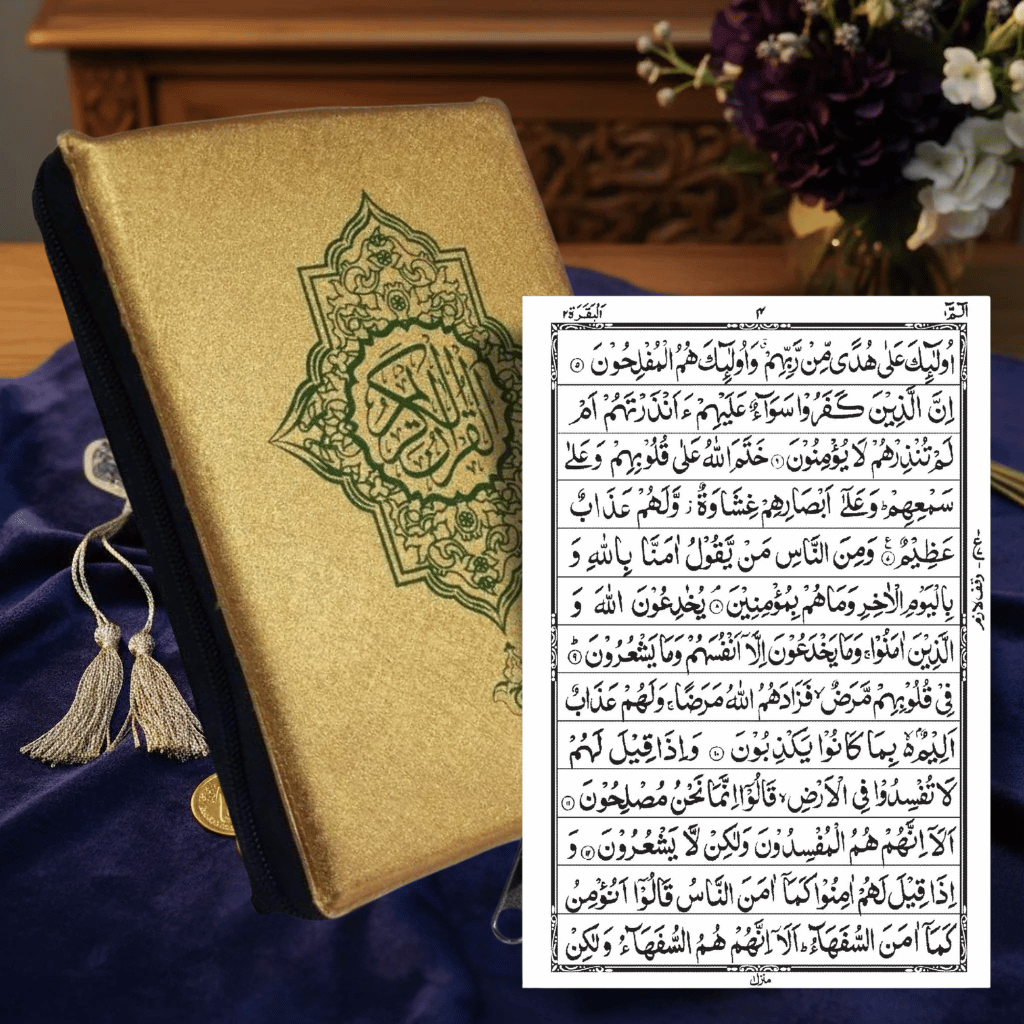 القرآن الكريم
الٓمّٓ ١ ۴ اَلْبَقَرَة ٢
اُولٰٓئِكَ عَلٰى هُدًى مِّنْ رَّبِّهِمْ ۗ وَاُولٰٓئِكَ هُمُ الْمُفْلِحُوْنَ ۵
اِنَّ الَّذِيْنَ كَفَرُوْا سَوَآءٌ عَلَيْهِمْ ءَاَنْذَرْتَهُمْ اَمْ
لَمْ تُنْذِرْهُمْ لَا يُؤْمِنُوْنَ ۶ خَتَمَ اللّٰهُ عَلٰى قُلُوْبِهِمْ وَعَلٰى
سَمْعِهِمْ ؕ وَعَلٰٓى اَبْصَارِهِمْ غِشَاوَةٌ ز وَّلَهُمْ عَذَابٌ
عَظِيْمٌ ۷ وَمِنَ النَّاسِ مَنْ يَّقُوْلُ اٰمَنَّا بِاللّٰهِ وَ
بِالْيَوْمِ الْاٰخِرِ وَمَا هُمْ بِمُؤْمِنِيْنَ ۸ يُخٰدِعُوْنَ اللّٰهَ وَ
وقف لازم
الَّذِيْنَ اٰمَنُوْا ۚ وَمَا يَخْدَعُوْنَ اِلَّاۤ اَنْفُسَهُمْ وَمَا يَشْعُرُوْنَ ؕ ۹
فِيْ قُلُوْبِهِمْ مَّرَضٌ ۙ فَزَادَهُمُ اللّٰهُ مَرَضًا ۚ وَلَهُمْ عَذَابٌ
اَلِيْمٌۢ بِمَا كَانُوْا يَكْذِبُوْنَ ۱۰ وَاِذَا قِيْلَ لَهُمْ
لَا تُفْسِدُوْا فِي الْاَرْضِ ۙ قَالُوْٓا اِنَّمَا نَحْنُ مُصْلِحُوْنَ ۱۱
اَلَاۤ اِنَّهُمْ هُمُ الْمُفْسِدُوْنَ وَلٰكِنْ لَّا يَشْعُرُوْنَ ۱۲ وَ
اِذَا قِيْلَ لَهُمْ اٰمِنُوْا كَمَاۤ اٰمَنَ النَّاسُ قَالُوْٓا اَنُؤْمِنُ
كَمَاۤ اٰمَنَ السُّفَهَآءُ ؕ اَلَاۤ اِنَّهُمْ هُمُ السُّفَهَآءُ وَلٰكِنْ
منزل ١